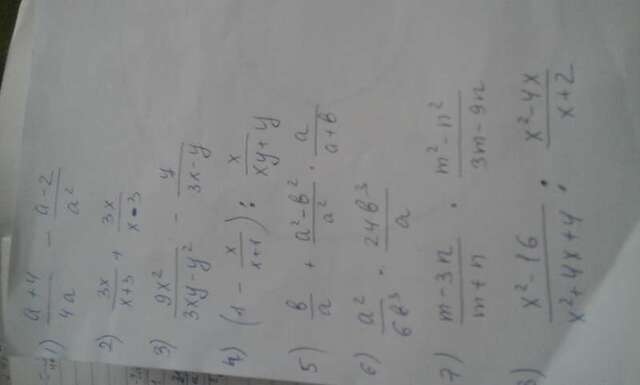 1) \frac{a+4}{4a} - \frac{a-2}{a^2}
2) \frac{3x}{x+3} + \frac{3x}{x-3}
3) \frac{9x^2}{3xy-y^2} - \frac{y}{3x-y}
4) (1 - \frac{x}{x+1}) : \frac{x}{xy+y}
5) \frac{b}{a} + \frac{a^2-b^2}{a^2} \cdot \frac{a}{a+b}
6) \frac{a^2}{6b^3} \cdot \frac{24b^3}{a}
7) \frac{m-3n}{m+n} \cdot \frac{m^2-n^2}{3m-9n}
8) \frac{x^2-16}{x^2+4x+4} : \frac{x^2-4x}{x+2}